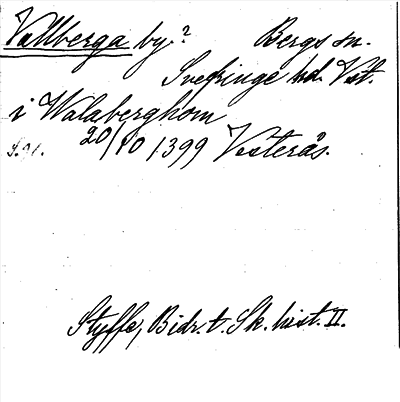 Vallberga by? Bergs sn.
Svefringe hd. Vst.
i Walaberghom
s. 91. 20/10 1399 Vesterås.
Styffe, Bidr. t. Sk. hist. II.